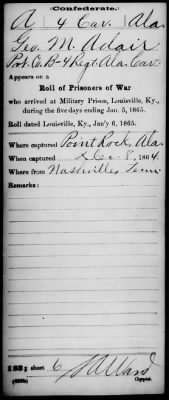 (Confederate.)
A 4 Cav. Ala.
Geo. M. Adair
Pvt. Co. B 4 Regt. Ala. Cav.
Appears on a
Roll of Prisoners of War
who arrived at Military Prison, Louisville, Ky.,
during the five days ending Jan. 5, 1865.
Roll dated Louisville, Ky., Jan'y 6, 1865.
Where captured Point Rock, Ala.
When captured Dec. 8, 1864
Where from Nashville, Tenn.
Remarks:
sheet 6
Copyist.